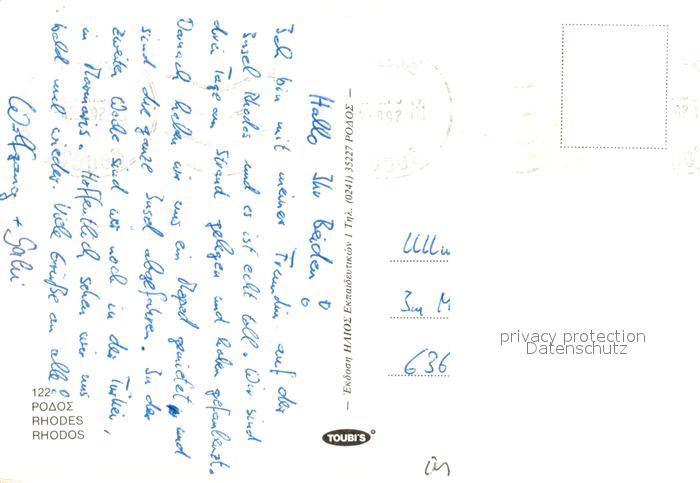 Hallo Ihr Beiden!
Ich bin mit meiner Freundin auf der
Insel Rhodos und es ist echt toll. Wir sind
drei Tage am Strand gelegen und haben gefaulenzt.
Danach haben wir uns ein Moped gemietet und
sind die ganze Insel abgefahren. In der
zweiten Woche sind wir noch in der Türkei,
in Marmaris. Hoffentlich sehen wir uns
bald mal wieder. Viele Grüße an alle
Wolfgang + Gabi
122
ΡΟΔΟΣ
RHODES
RHODOS
— Έκδοση ΗΛΙΟΣ Εκπαιδευτικών 1 Τηλ. (0241) 35227 ΡΟΔΟΣ —
TOUBI'S
636
privacy protection
Datenschutz